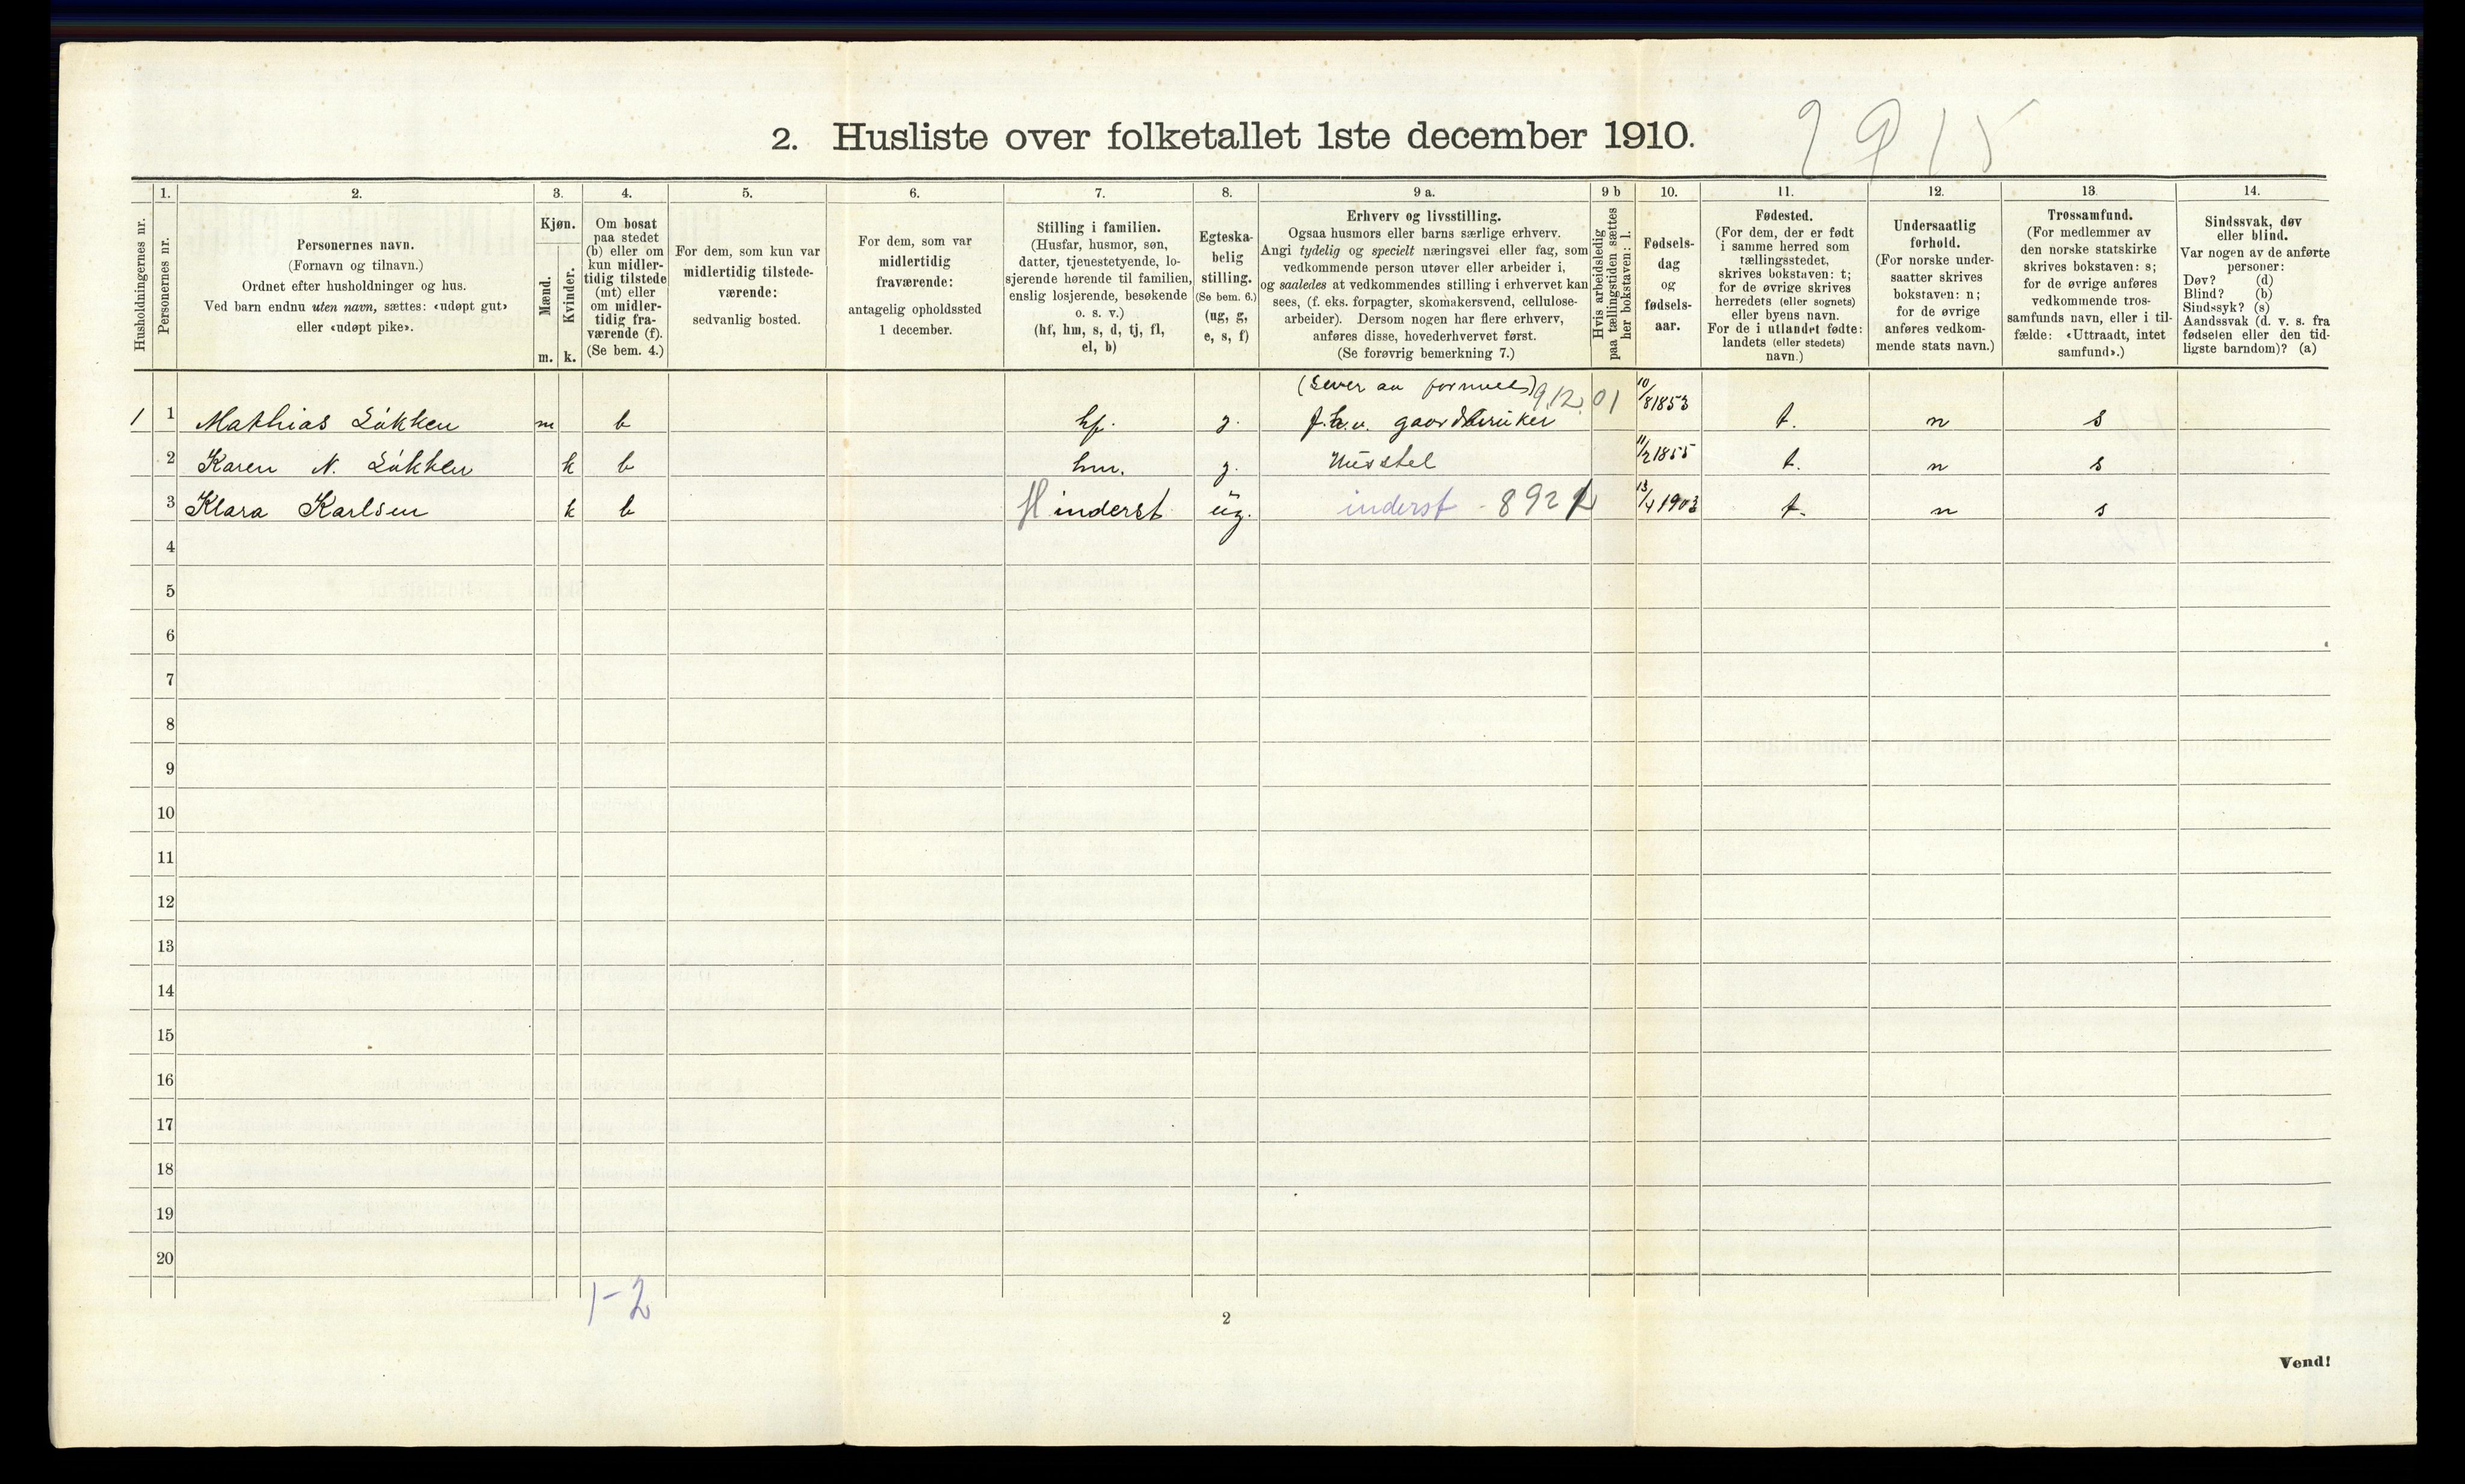 2. Husliste over folketallet 1ste december 1910.
2915
Husholdningernes nr.
1.
Personernes nr.
2.
Personernes navn.
(Fornavn og tilnavn.)
Ordnet efter husholdninger og hus.
Ved barn endnu uten navn, sættes: «udøpt gut»
eller «udøpt pike».
3.
Kjøn.
Mænd.
m.
Kvinder.
k.
4.
Om bosat
paa stedet
(b) eller om
kun midler-
tidig tilstede
(mt) eller
om midler-
tidig fra-
værende (f).
(Se bem. 4.)
5.
For dem, som kun var
midlertidig tilstede-
værende:
sedvanlig bosted.
6.
For dem, som var
midlertidig
fraværende:
antagelig opholdssted
1 december.
7.
Stilling i familien.
(Husfar, husmor, søn,
datter, tjenestetyende, lo-
sjerende hørende til familien,
enslig losjerende, besøkende
o. s. v.)
(hf, hm, s, d, tj, fl,
el, b)
8.
Egteska-
belig
stilling.
(Se bem. 6.)
(ug, g,
e, s, f)
9 a.
Erhverv og livsstilling.
Ogsaa husmors eller barns særlige erhverv.
Angi tydelig og specielt næringsvei eller fag, som
vedkommende person utøver eller arbeider i,
og saaledes at vedkommendes stilling i erhvervet kan
sees, (f. eks. forpagter, skomakersvend, cellulose-
arbeider). Dersom nogen har flere erhverv,
anføres disse, hovederhvervet først.
(Se forøvrig bemerkning 7.)
9 b
Hvis arbeidsledig
paa tællingstiden sættes
her bokstaven: l.
10.
Fødsels-
dag
og
fødsels-
aar.
11.
Fødested.
(For dem, der er født
i samme herred som
tællingsstedet,
skrives bokstaven: t;
for de øvrige skrives
herredets (eller sognets)
eller byens navn.
For de i utlandet fødte:
landets (eller stedets)
navn.)
12.
Undersaatlig
forhold.
(For norske under-
saatter skrives
bokstaven: n;
for de øvrige
anføres vedkom-
mende stats navn.)
13.
Trossamfund.
(For medlemmer av
den norske statskirke
skrives bokstaven: s;
for de øvrige anføres
vedkommende tros-
samfunds navn, eller i til-
fælde: «Uttraadt, intet
samfund».)
14.
Sindssvak, døv
eller blind.
Var nogen av de anførte
personer:
Døv? (d)
Blind? (b)
Sindssyk? (s)
Aandssvak (d. v. s. fra
fødselen eller den tid-
ligste barndom)? (a)
(Lever av formues) 912 01
1 1 Mathias Løkken m b hf. g. f.h.v. gaardbruker 10/8 1853 t. n s
2 Karen N. Løkken k b hm. g. Husstel 11/2 1855 t. n s
3 Klara Karlsen k b fl inderst ug. inderst - 892 13/4 1903 t. n s
4
5
6
7
8
9
10
11
12
13
14
15
16
17
18
19
20
1-2
2
Vend!